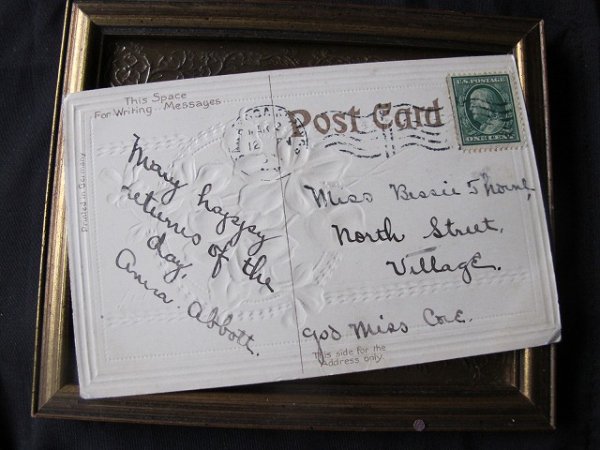 This Space
For Writing Messages
Post Card
U.S. POSTAGE
ONE CENT
Printed in Germany
Many happy
returns of the
day.
Anna Abbott.
Miss Bessie Thorne,
North Street,
Village.
c/o Miss Coe.
This side for the
Address only.